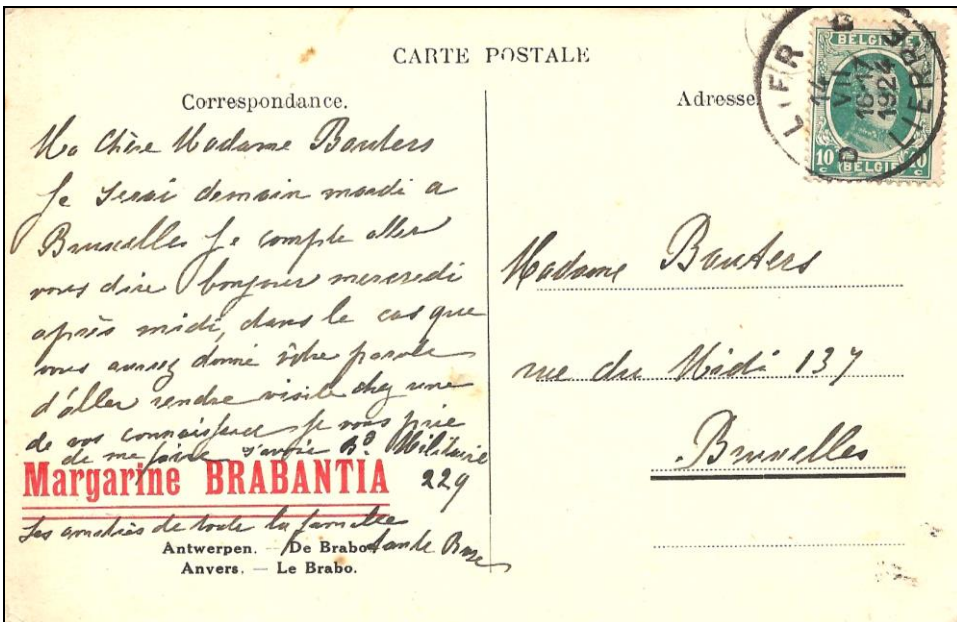 CARTE POSTALE
Correspondance.
Adresse
Ma Chère Madame Bauters
Je serai demain mardi a
Bruxelles je compte aller
vous dire bonjour mercredi
après midi, dans le cas que
vous auriez donné vôtre parole
d'aller rendre visite chez une
de vos connaissance je vous prie
de me faire savoir Bd Militaire
229
Margarine BRABANTIA
Les amitiés de toute la famille
tante
Antwerpen. — De Brabo
Anvers. — Le Brabo.
LIER
14 VII
16-17
1924
LIERRE
BELGIQUE
10 c
BELGIË
10 c
Madame Bauters
rue du Midi 137
Bruxelles